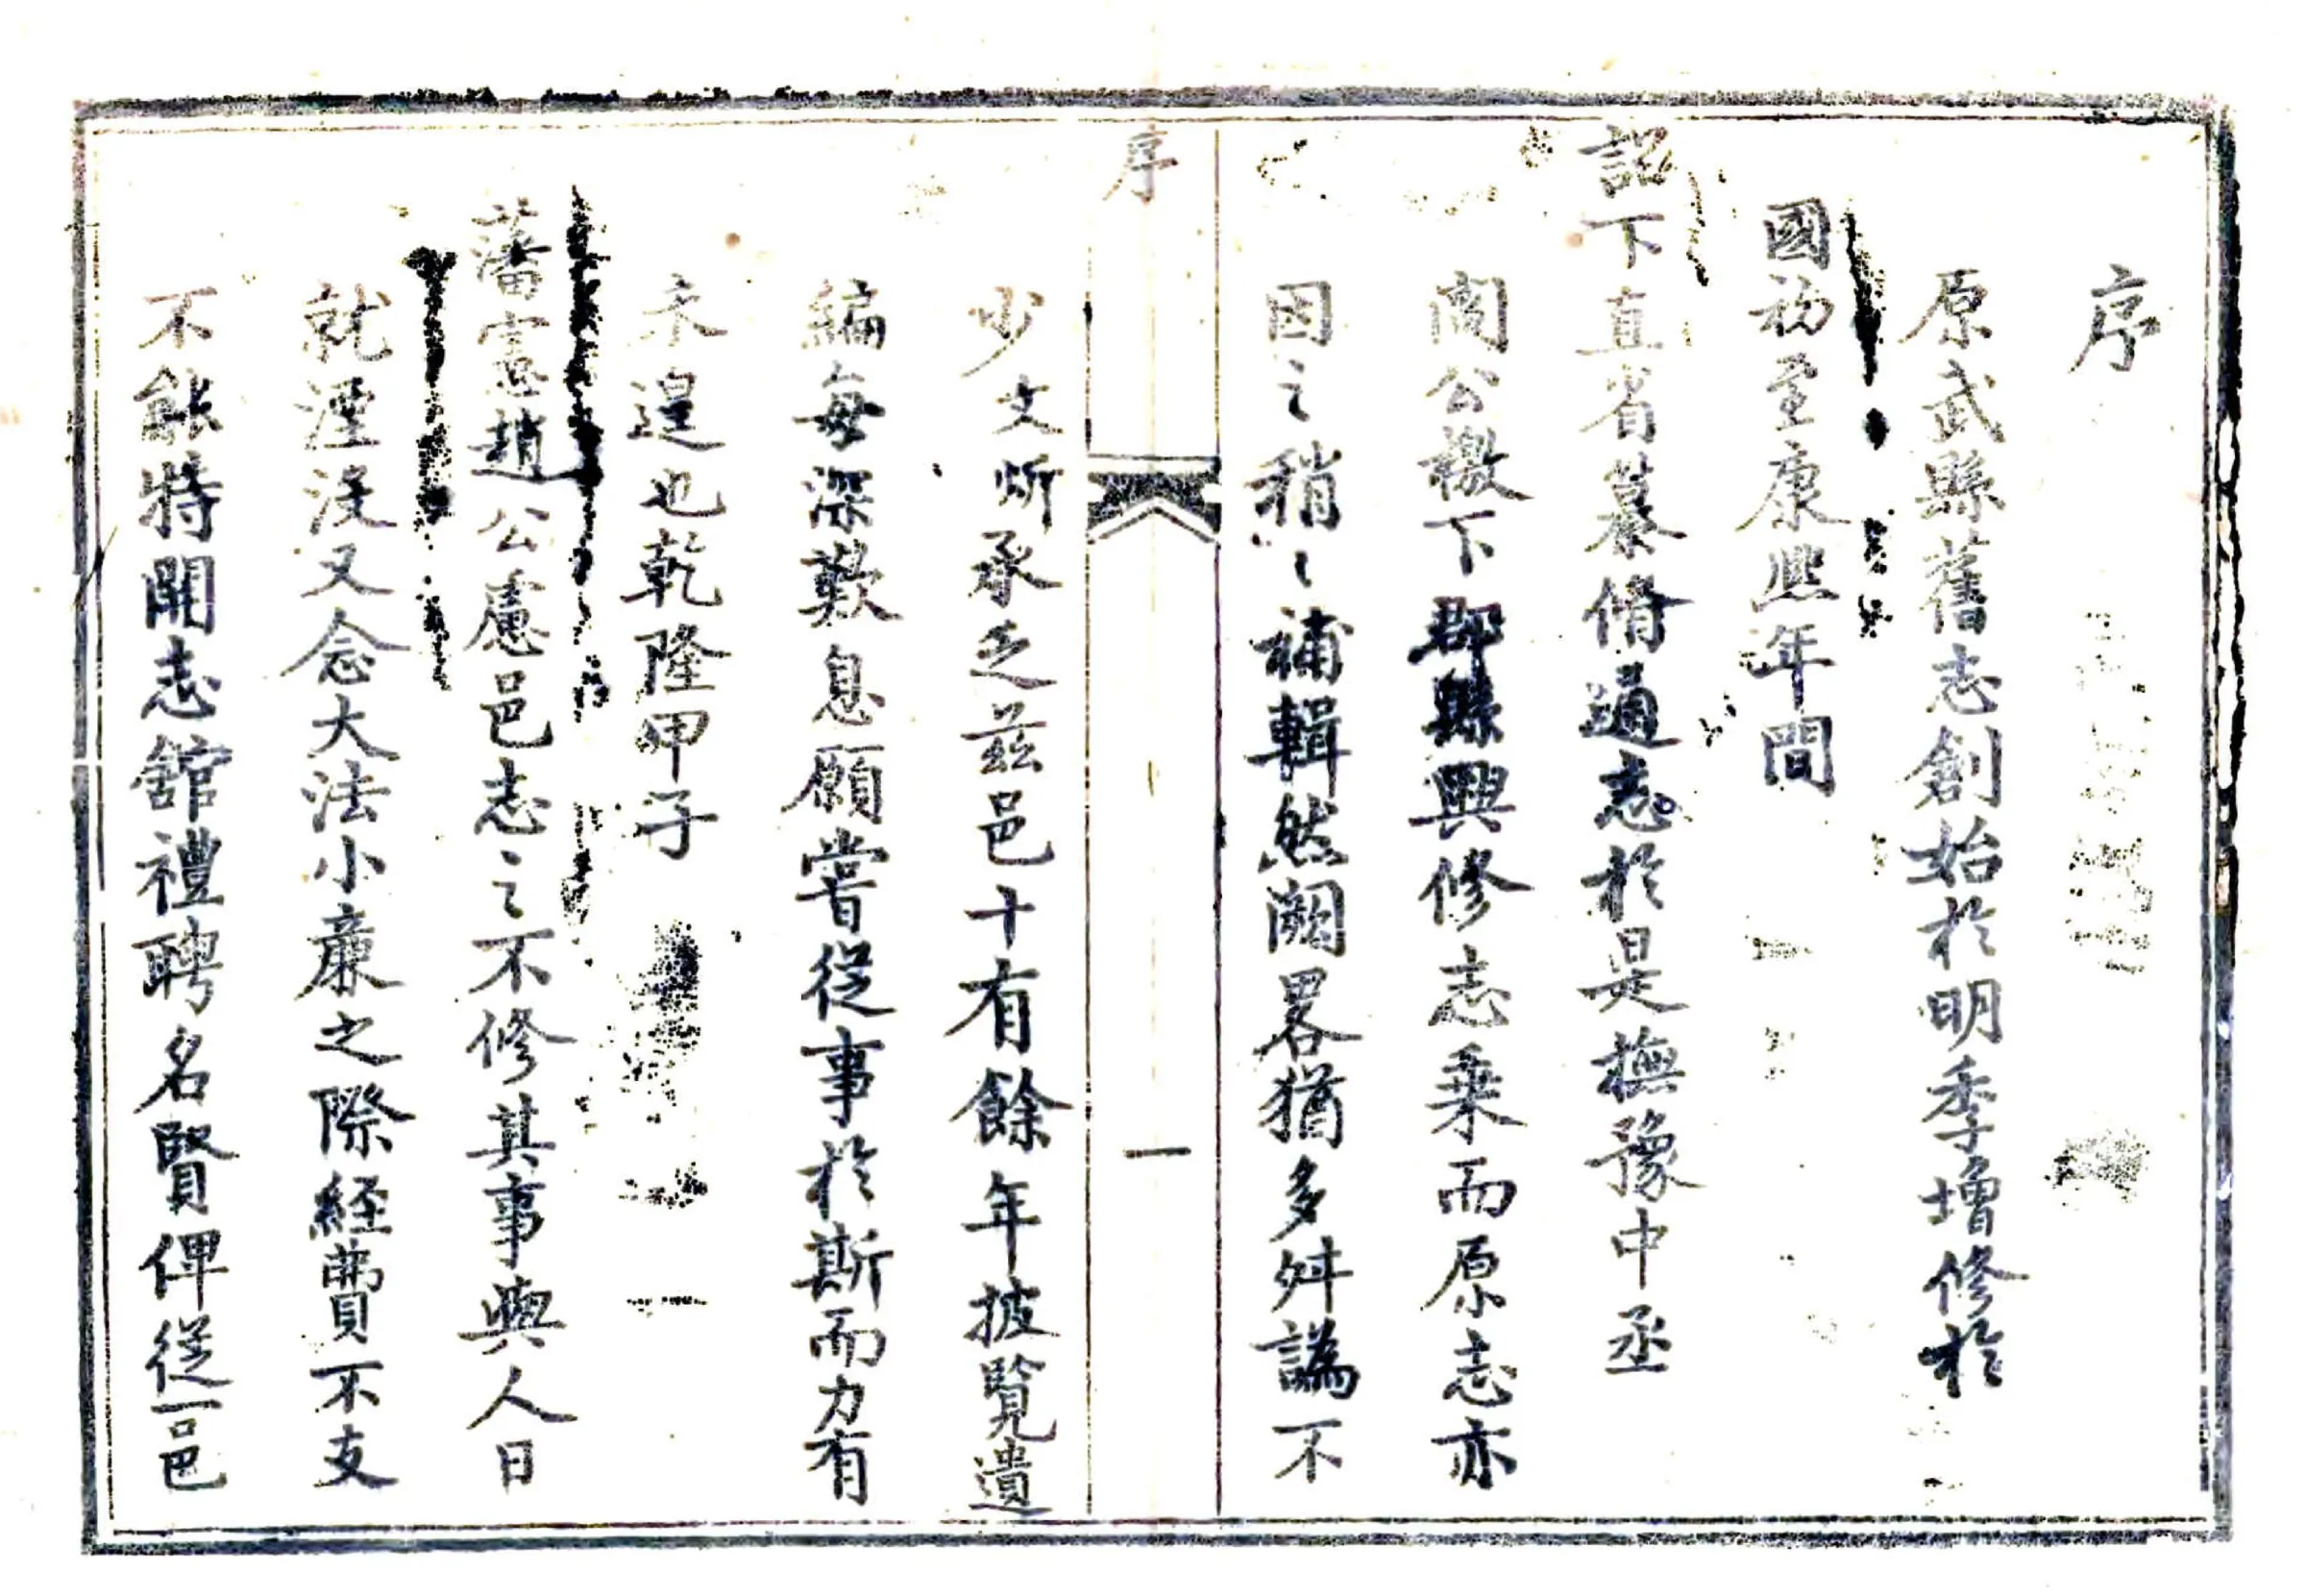 序
原武縣舊志創始於明季增修於
國初至康熙年間
詔下直省纂脩通志於是撫豫中丞
閻公檄下郡縣興修志乗而原志亦
因之稍〻補輯然闕畧猶多舛譌不
序
一
少文炘承乏茲邑十有餘年披覽遺
編每深歎息願嘗從事於斯而力有
未遑也乾隆甲子
藩憲趙公慮邑志之不修其事與人日
就湮没又念大法小亷之際経費不支
不能特開志舘禮聘名賢俾從一邑